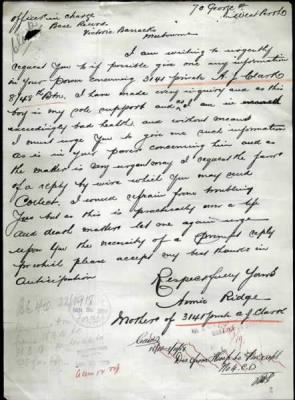 70 George St
Officer in charge
Base Records
Victoria Barracks
Melbourne
I am writing to urgently
request you to if possible give me any information
in your power concerning 3141 Private A. J. Clark
8/48th Btn. I have made every inquiry and as this
boy is my sole support and as I am in
exceedingly bad health and without means
I must urge you to give me such information
as is in your power concerning him and as
the matter is very urgent may I request the favor
of a reply by wire which you may send
Collect. I would refrain from troubling
you but as this is practically a life
and death matter let me again urge
upon you the necessity of a prompt reply
for which please accept my best thanks in
anticipation
Respectfully yours
Annie Ridge
Mother of 3141 Private A J Clark